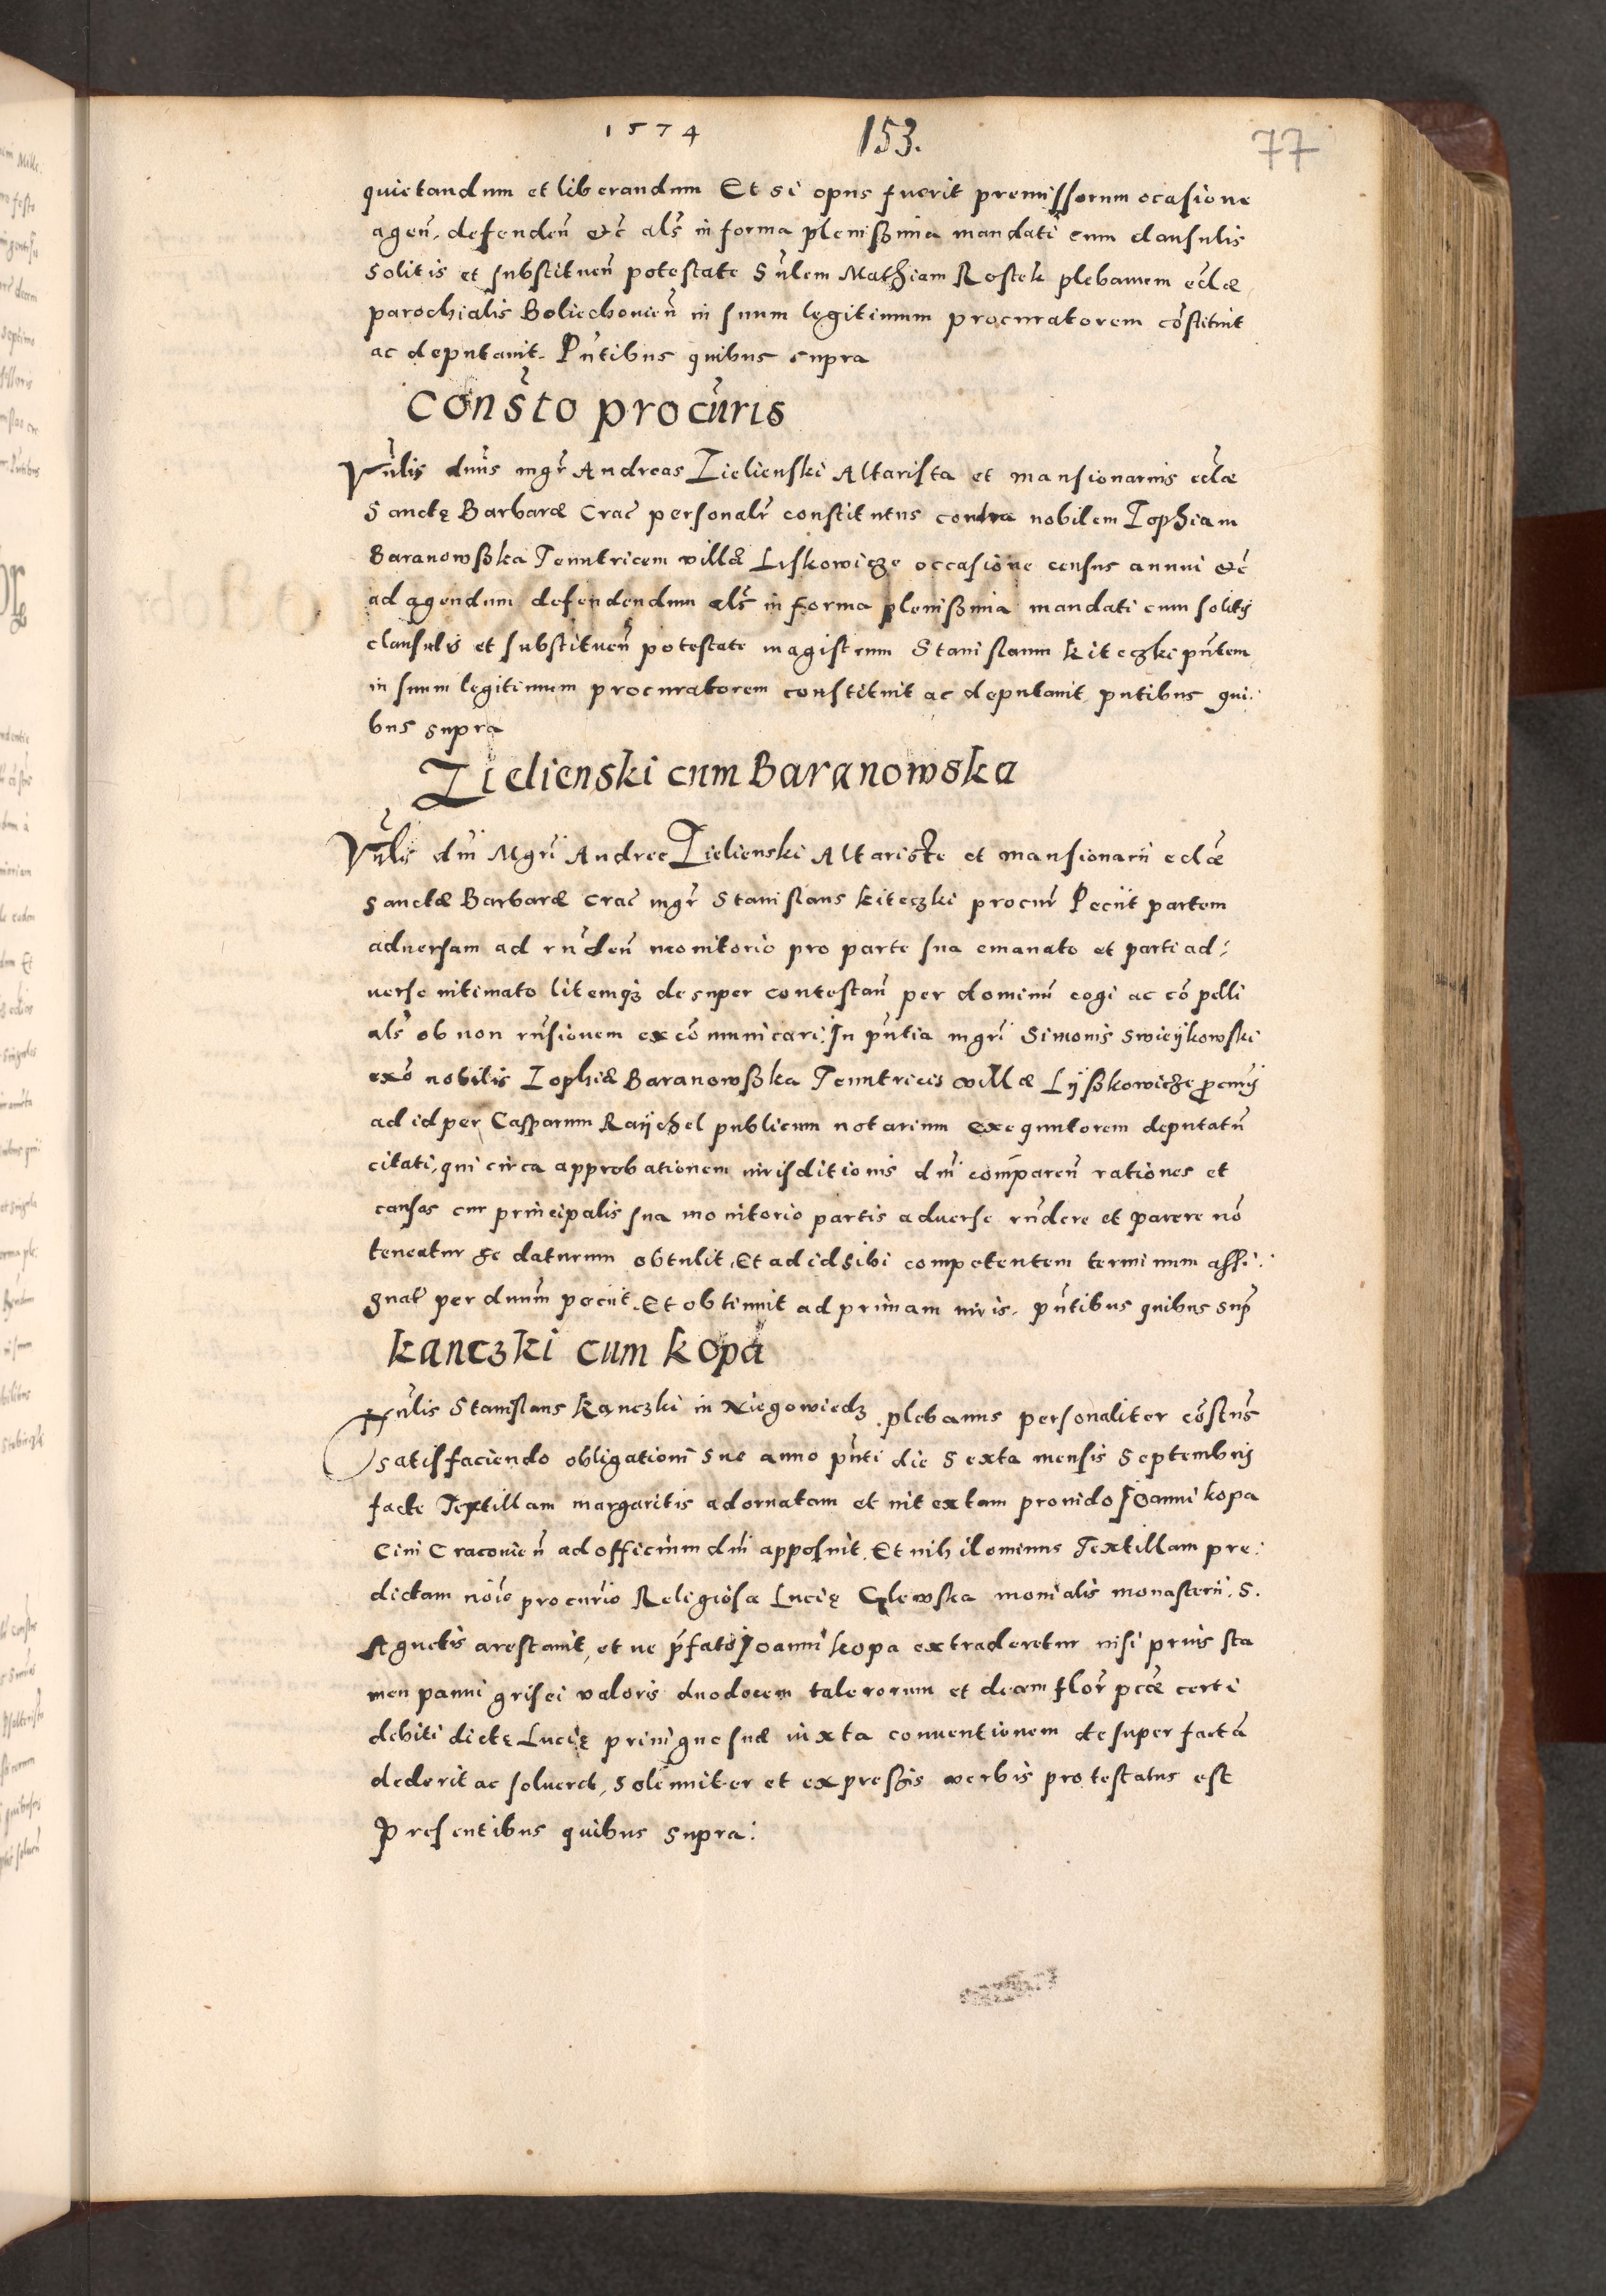 1574 153. 77
quietandum et liberandum Et si opus fuerit premissorum ocasione
agen̄. defenden̄ etc̄ als̄ in forma plenissima mandati cum clausulis
solitis et substituen̄ potestate Hn̄lem Mathiam Rostek plebanum eccl̄æ
parochialis Boliechouien̄ in suum legitimum procuratorem cōstituit
ac deputauit. Pn̄tibus quibus supra
Consto procur̄is
Vn̄lis dnūs mgr̄ Andreas Zielienski Altarista et mansionarius ecl̄æ
Sanctę Barbaræ Crac̄ personalr̄ constitutus contra nobilem Zophiam
Baranowska Tenutricem villæ Liskowicze occasione census annui etc̄
ad agendum defendendum als̄ in forma plenissima mandati cum solitis
clausulis et substituen̄ potestate magistrum Stanislaum Kiteczki pn̄tem
in suum legitimum procuratorem constituit ac deputauit pn̄tibus qui.
bus supra
Zielienski cum Baranowska
Vn̄lis dn̄i Mgrī Andree Zielienski Altariste et mansionarii ecl̄æ
Sanctæ Barbaræ Crac̄ mgr̄ Stanislaus Kiteczki procur̄ Peciit partem
aduersam ad rn̄den̄ monitorio pro parte sua emanato et parti ad:
uerse intimato litemqʒ desuper contestan̄ per dominū cogi ac cōpelli
als̄ ob non rn̄sionem excōmunicari. In pn̄tia mgrī Simonis Swieykowski
ex̄o nobilis Zophiæ Baranowska Tenutricis villæ Lyskowicze procuris
ad id per Casparum Raychel publicum notarium exequutorem deputatū
citati, qui circa approbationem iurisditionis dn̄i comparen̄ rationes et
causas cur principalis sua monitorio partis aduerse rn̄dere et parere nō
teneatur se daturum obtulit, Et ad id sibi competentem terminum assi:
gnar̄ per dnūm peciit. Et obtinuit ad primam iuris. pn̄tibus quibus sup̄
Kanczki cum Kopa
Hn̄lis Stanislaus Kanczki in Niegowiedz plebanus personaliter cōstūs
satisfaciendo obligationi sue anno pn̄ti die Sexta mensis Septembris
facte Textillam margaritis adornatam et intextam prouido Joanni Kopa
Ciui Cracouien̄ ad officium dn̄i apposuit. Et nihilominus Textillam pre:
dictam noīe procur̄io Religiosæ Lucię Glewska monialis monasterii. S.
Agnetis arestauit, et ne pr̄fato Joanni Kopa extraderetur nisi prius sta
men panni grisei valoris duodecem talerorum et decem flor̄ pccæ certi
debiti dictę Lucię priuignæ suæ iuxta conuentionem desuper factā
dederit ac soluerit, Solenniter et expressis verbis protestatus est
Presentibus quibus supra: